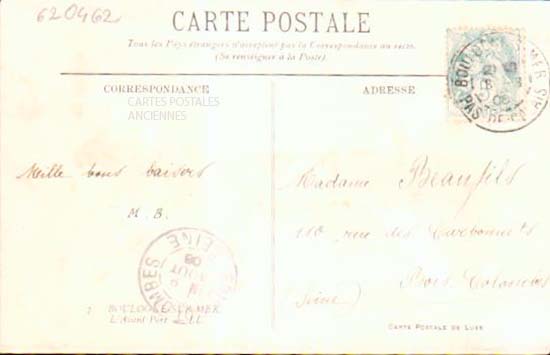 620462
CARTE POSTALE
Tous les Pays étrangers n'acceptent pas la Correspondance au recto.
(Se renseigner à la Poste).
CORRESPONDANCE
ADRESSE
CARTES POSTALES
ANCIENNES
Mille bons baisers
M. B.
Madame Beaufils
110, rue des
Bois Colombes
(Seine)
BOULOGNE-SUR-MER
PAS-DE-CALAIS
AOUT
BOULOGNE-SUR-MER
L'Avant-Port LL.
CARTE POSTALE DE LUXE